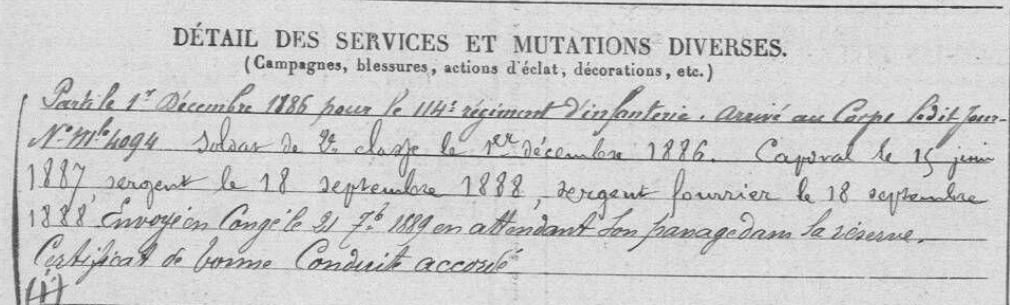 DÉTAIL DES SERVICES ET MUTATIONS DIVERSES.
(Campagnes, blessures, actions d'éclat, décorations, etc.)
Parti le 1er Décembre 1886 pour le 114e régiment d'infanterie. arrivé au Corps ledit jour
No Mle 4094 Soldat de 2e classe le 1er décembre 1886. Caporal le 15 juin
1887 sergent le 18 septembre 1888, sergent fourrier le 18 septembre
1888 Envoyé en Congé le 21 7b 1889 en attendant son passage dans la réserve.
Certificat de bonne Conduite accordé
(1)